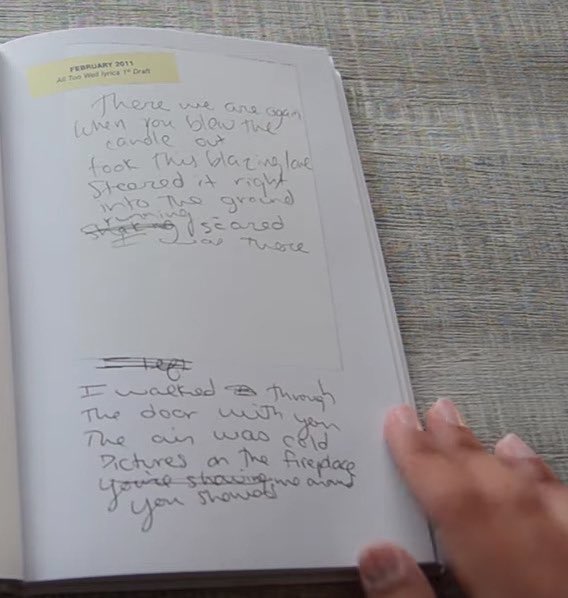 FEBRUARY 2011
All Too Well lyrics 1st Draft
There we are again
When you blew the
candle out
took this blazing love
Steered it right
into the ground
running
scared
I was there
I walked through
The door with you
The air was cold
Pictures on the fireplace
you're showing me around
you showed